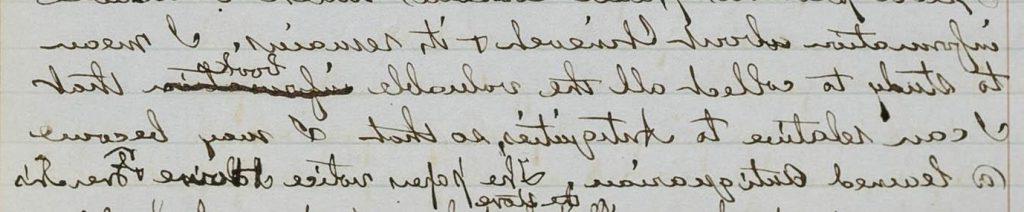 information about Nineveh & its remains. I mean
books
to study to collect all the valuable information that
I can relative to Antiquities, so that I may become
a learned Antiquarian. The paper notice French's
store